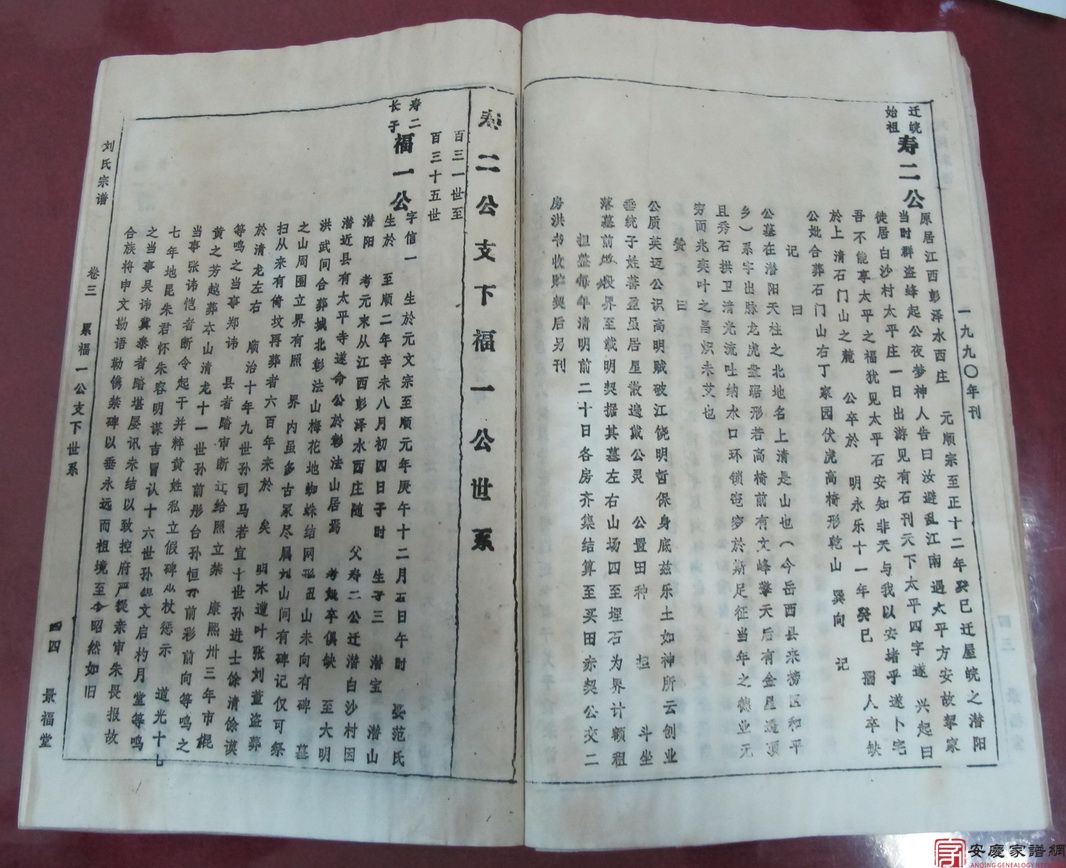 一九九〇年刊
迁皖
始祖
寿二公
原居江西彭泽水西庄 元顺宗至正十二年癸巳迁屋皖之潜阳
当时群盗蜂起公夜梦神人告曰汝避乱江南遇太平方安故挈家
徒居白沙村太平庄一日出游见有石刊天下太平四字遂 兴起曰
吾不能尊太平之福犹见太平石安知非天与我以安堵乎遂卜宅
於上清石门山之麓 公卒於 明永乐十一年癸巳 孺人卒缺
公妣合葬石门山右丁家园伏虎高椅形乾山 巽向 记
记 曰
公墓在潜阳天柱之北地名上清是山也(今岳西县来榜区和平
乡)系字出脉龙虎踞形若高椅前有文峰擎天后有金星遶顶
且秀石拱卫清光流吐纳水口环锁 於斯足征当年之德业元
穷而兆奕叶之昌炽未艾也
赞 曰
公质英迈公识高明赋破江饶明哲保身底兹乐土如神所云创业
垂统子姓蕃盈虽居星散遶戴公灵 公置田种 担 斗坐
落墓前 界至载明契据其墓左右山场四至埋石为界计额租
担整每年清明前二十日各房齐集结算至买田赤契公交二
房洪书收贮契后另刊
寿二公支下福一公世系
百三一世至
百三十五世
寿二
长子
福一公
字信一 生於元文宗至顺元年庚午十二月五日午时 娶范氏
生於 至顺二年辛未八月初四日子时 生子三 潜宝 潜山
潜阳 考元末从江西彭泽水西庄随 父寿二公迁潜白沙村因
潜近县有太平寺遂命公於彰法山居焉 考妣卒俱缺 至大明
洪武间合葬城北彰法山梅花地蜘蛛结网形丑山未向有碑 墓
之山周围立界有照 界内虽多古冢尽属刘山问有碑记仅可祭
扫从来有倚坟再葬者六百年来於 矣 明末道叶张刘董盗葬
於清龙左右 顺治十年九世孙司马若宜十世孙进士馀清馀谟
等鸣之当事郑讳 县者踏审断迁给照立禁 康熙卅三年市棍
黄之芳越葬本山清龙十一世孙前彤台孙恒 前彩前向等鸣之
当事张讳 他者断令起干并粹黄姓私立假碑 杖惩示 道光十
七年地昆朱君怀朱容明谋吉冒认十六世孙 文启灼月堂等鸣
之当事吴讳冀泰者踏堪屡讯朱结以致控府严提亲审朱畏报故
合族将申文勘语勒儁禁碑以垂永远而祖境至今昭然如旧
刘氏宗谱 卷三 累福一公支下世系 四四 景福堂
安慶家譜網
ANQING GENEALOGY NETWORK